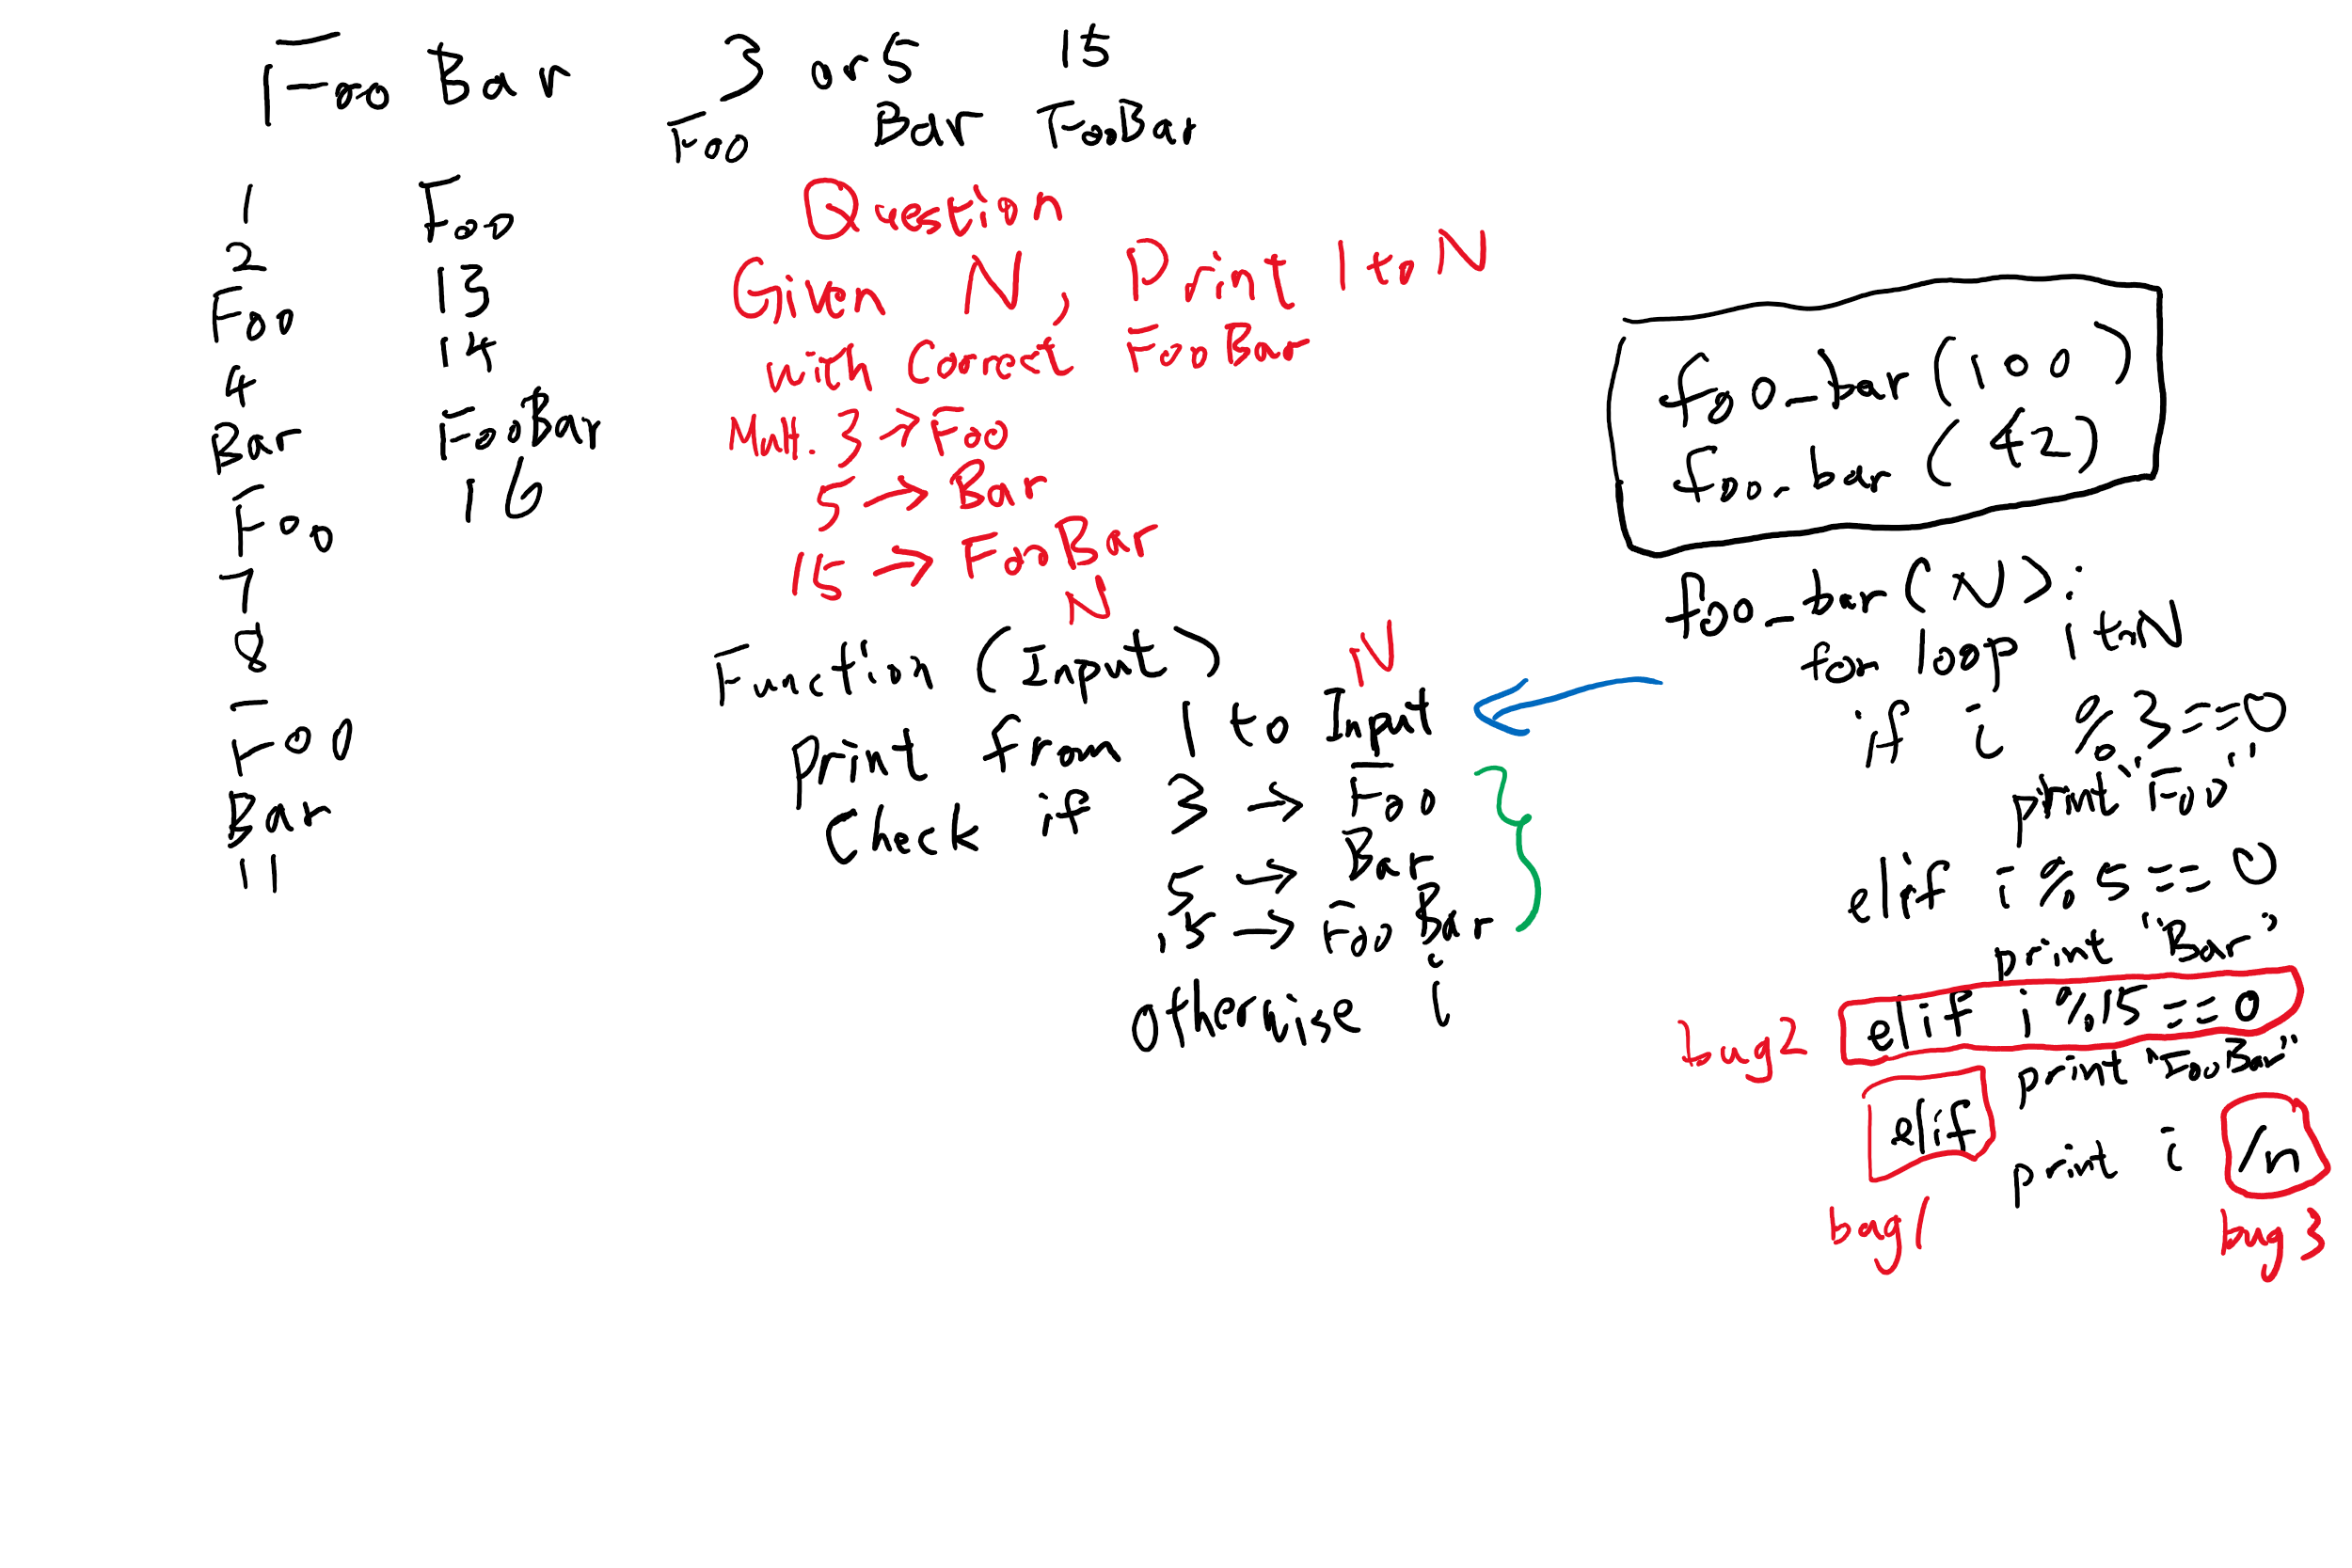 Foo Bar
3 or 5 15
Foo Bar FooBar
1
2
Foo
4
Bar
Foo
7
8
Foo
Bar
11
Foo
13
14
FooBar
16
Question
Given N, Print 1 to N
with Correct FooBar
Mult. 3 → Foo
5 → Bar
15 → FooBar
N
Function (Input)
N
Print from 1 to Input
Check if 3 → Foo
5 → Bar
15 → Foo Bar
otherwise i
foo_bar (100)
foo_bar (42)
foo_bar (N):
for loop 1 to N
if i % 3 == 0
print "Foo"
elif i % 5 == 0
print "Bar"
bug2 elif i % 15 == 0
print "FooBar"
elif
print i /n
bug1 bug3